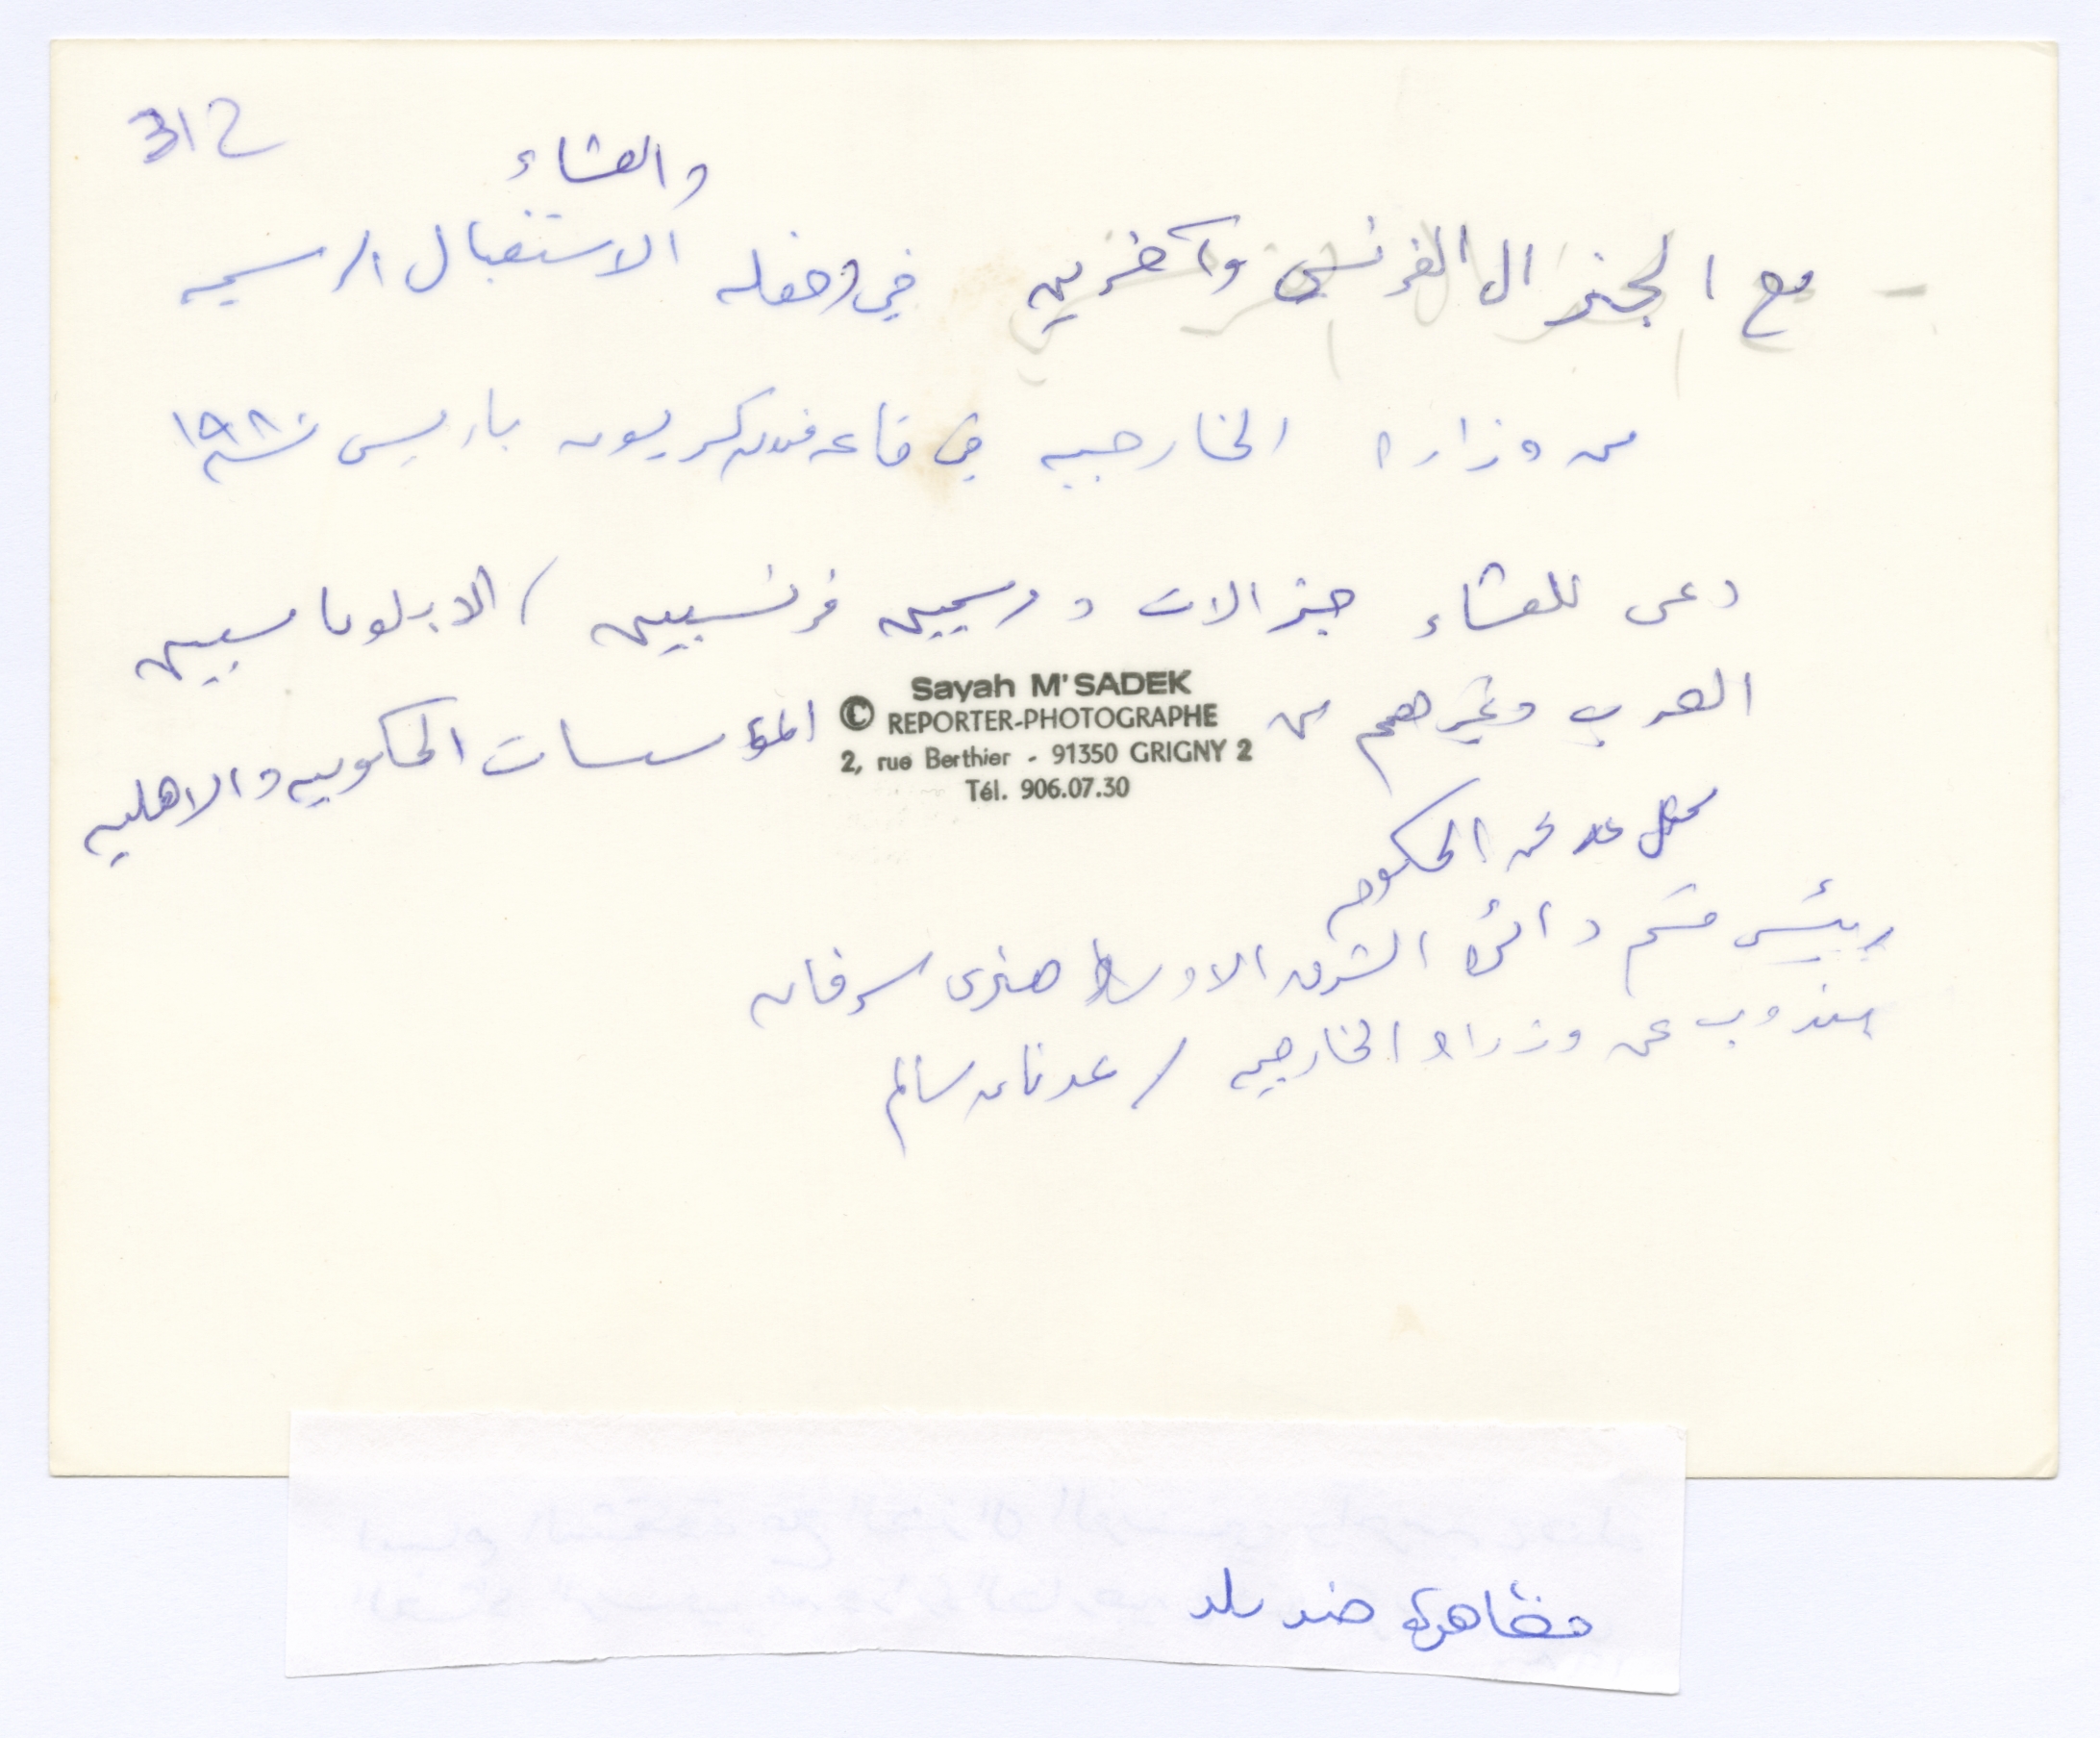 312
والعشاء
- مع الجنرال الفرنسي وآخرين في حفله الاستقبال الرسميه
من وزارة الخارجيه في قاعه فندق كريون باريس سنة ١٩٨٠
دعى للعشاء جنرالات و رسميين فرنسيين / الدبلوماسيين
العرب وغيرهم من المؤسسات الحكوميه والاهليه
Sayah M'SADEK
© REPORTER-PHOTOGRAPHE
2, rue Berthier - 91350 GRIGNY 2
Tél. 906.07.30
الحكومه
رييئس قسم دائرة الشرق الاوسط هنري سرفان
مندوب عن وزارة الخارجيه / عدنان سالم
مظاهرة ضد